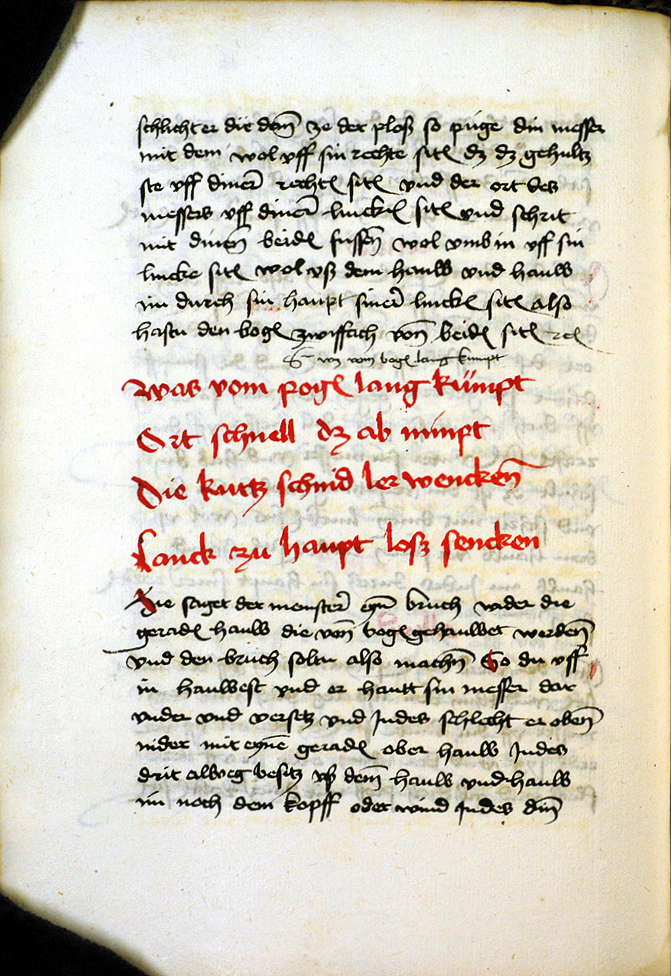 schlicht er dir dan̄ ze der ploß so püge din messer
mit dem wol vff sin rechte sitē dz dz gehultz
ste vff dinē rechtē sitē vnd der ort des
messers vff dinē linckē sitē vnd schrit
mit dinen beidē fussen wol vmb in vff sin
lincke sitē wol vß dem hauw vnd hauw
im durch sin haupt sinē linckē sitē also
hastu den bogē zwiffach von beidē sitē
was vom bogē lang kumpt
was vom pogē lang kümpt
Ort schnell dz ab nimpt
Die kurtz schnid ler wencken̄
Lanck zu haupt losz sencken
Hie saget der meinster eyn bruch wider die
geradē hauw die von bogē gehauwet werden̄
vnd den bruch soltu also machen So du vff
in hauwest vnd er hautt sin messer dar
vnder vnd versetz vnd Jndes schlecht er oben̄
nider mit eynē geradē ober hauw Jndes
drit alweg besitz vß dem hauw vnd hauw
im noch dem kopff oder wind Jndes din̄